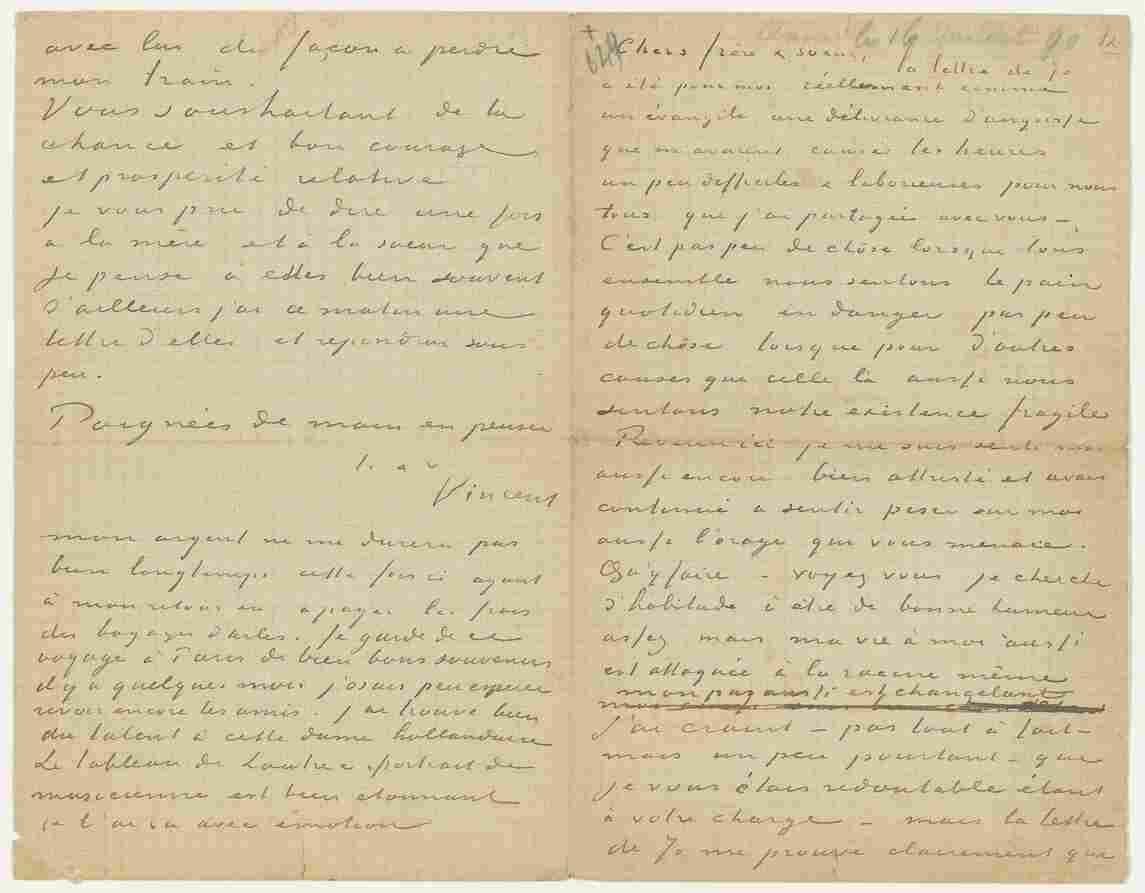 avec lui de façon a perdre
mon train.
Vous souhaitant de la
chance et bon courage
et prosperité relative
je vous prie de dire une fois
a la mère et à la soeur que
je pense à elles bien souvent
d'ailleurs j'ai ce matin une
lettre d'elles et repondrai sous
peu.
Poignées de main en pensée
t. a v
Vincent
mon argent ne me durera pas
bien longtemps cette fois ci ayant
à mon retour eu a payer les frais
des bagages d'arles. Je garde de ce
voyage à Paris de bien bons souvenirs
il y a quelques mois j'osais peu espérer
revoir encore les amis. J'ai trouvé bien
du talent à cette dame hollandaise
Le tableau de Lautrec portrait de
musicienne est bien etonnant
je l'ai vu avec émotion
629
Chers frère & soeur, la lettre de Jo
a été pour moi réellement comme
un évangile une délivrance d'angoisse
que m'avaient causée les heures
un peu difficiles & laborieuses pour nous
tous que j'ai partagées avec vous –
C'est pas peu de chôse lorsque tous
ensemble nous sentons le pain
quotidien en danger pas peu
de chôse lorsque pour d'autres
causes que celle là aussi nous
sentons notre existence fragile
Revenu ici je me suis senti moi
aussi encore bien attristé et avais
continué a sentir peser sur moi
aussi l'orage qui vous menace.
Qu'y faire – voyez vous je cherche
d'habitude à être de bonne humeur
assez mais ma vie à moi aussi
est attaquée à la racine même
mon pas aussi est chancelant
J'ai craint – pas tout à fait –
mais un peu pourtant – que
je vous étais redoutable étant
à votre charge – mais la lettre
de Jo me prouve clairement que